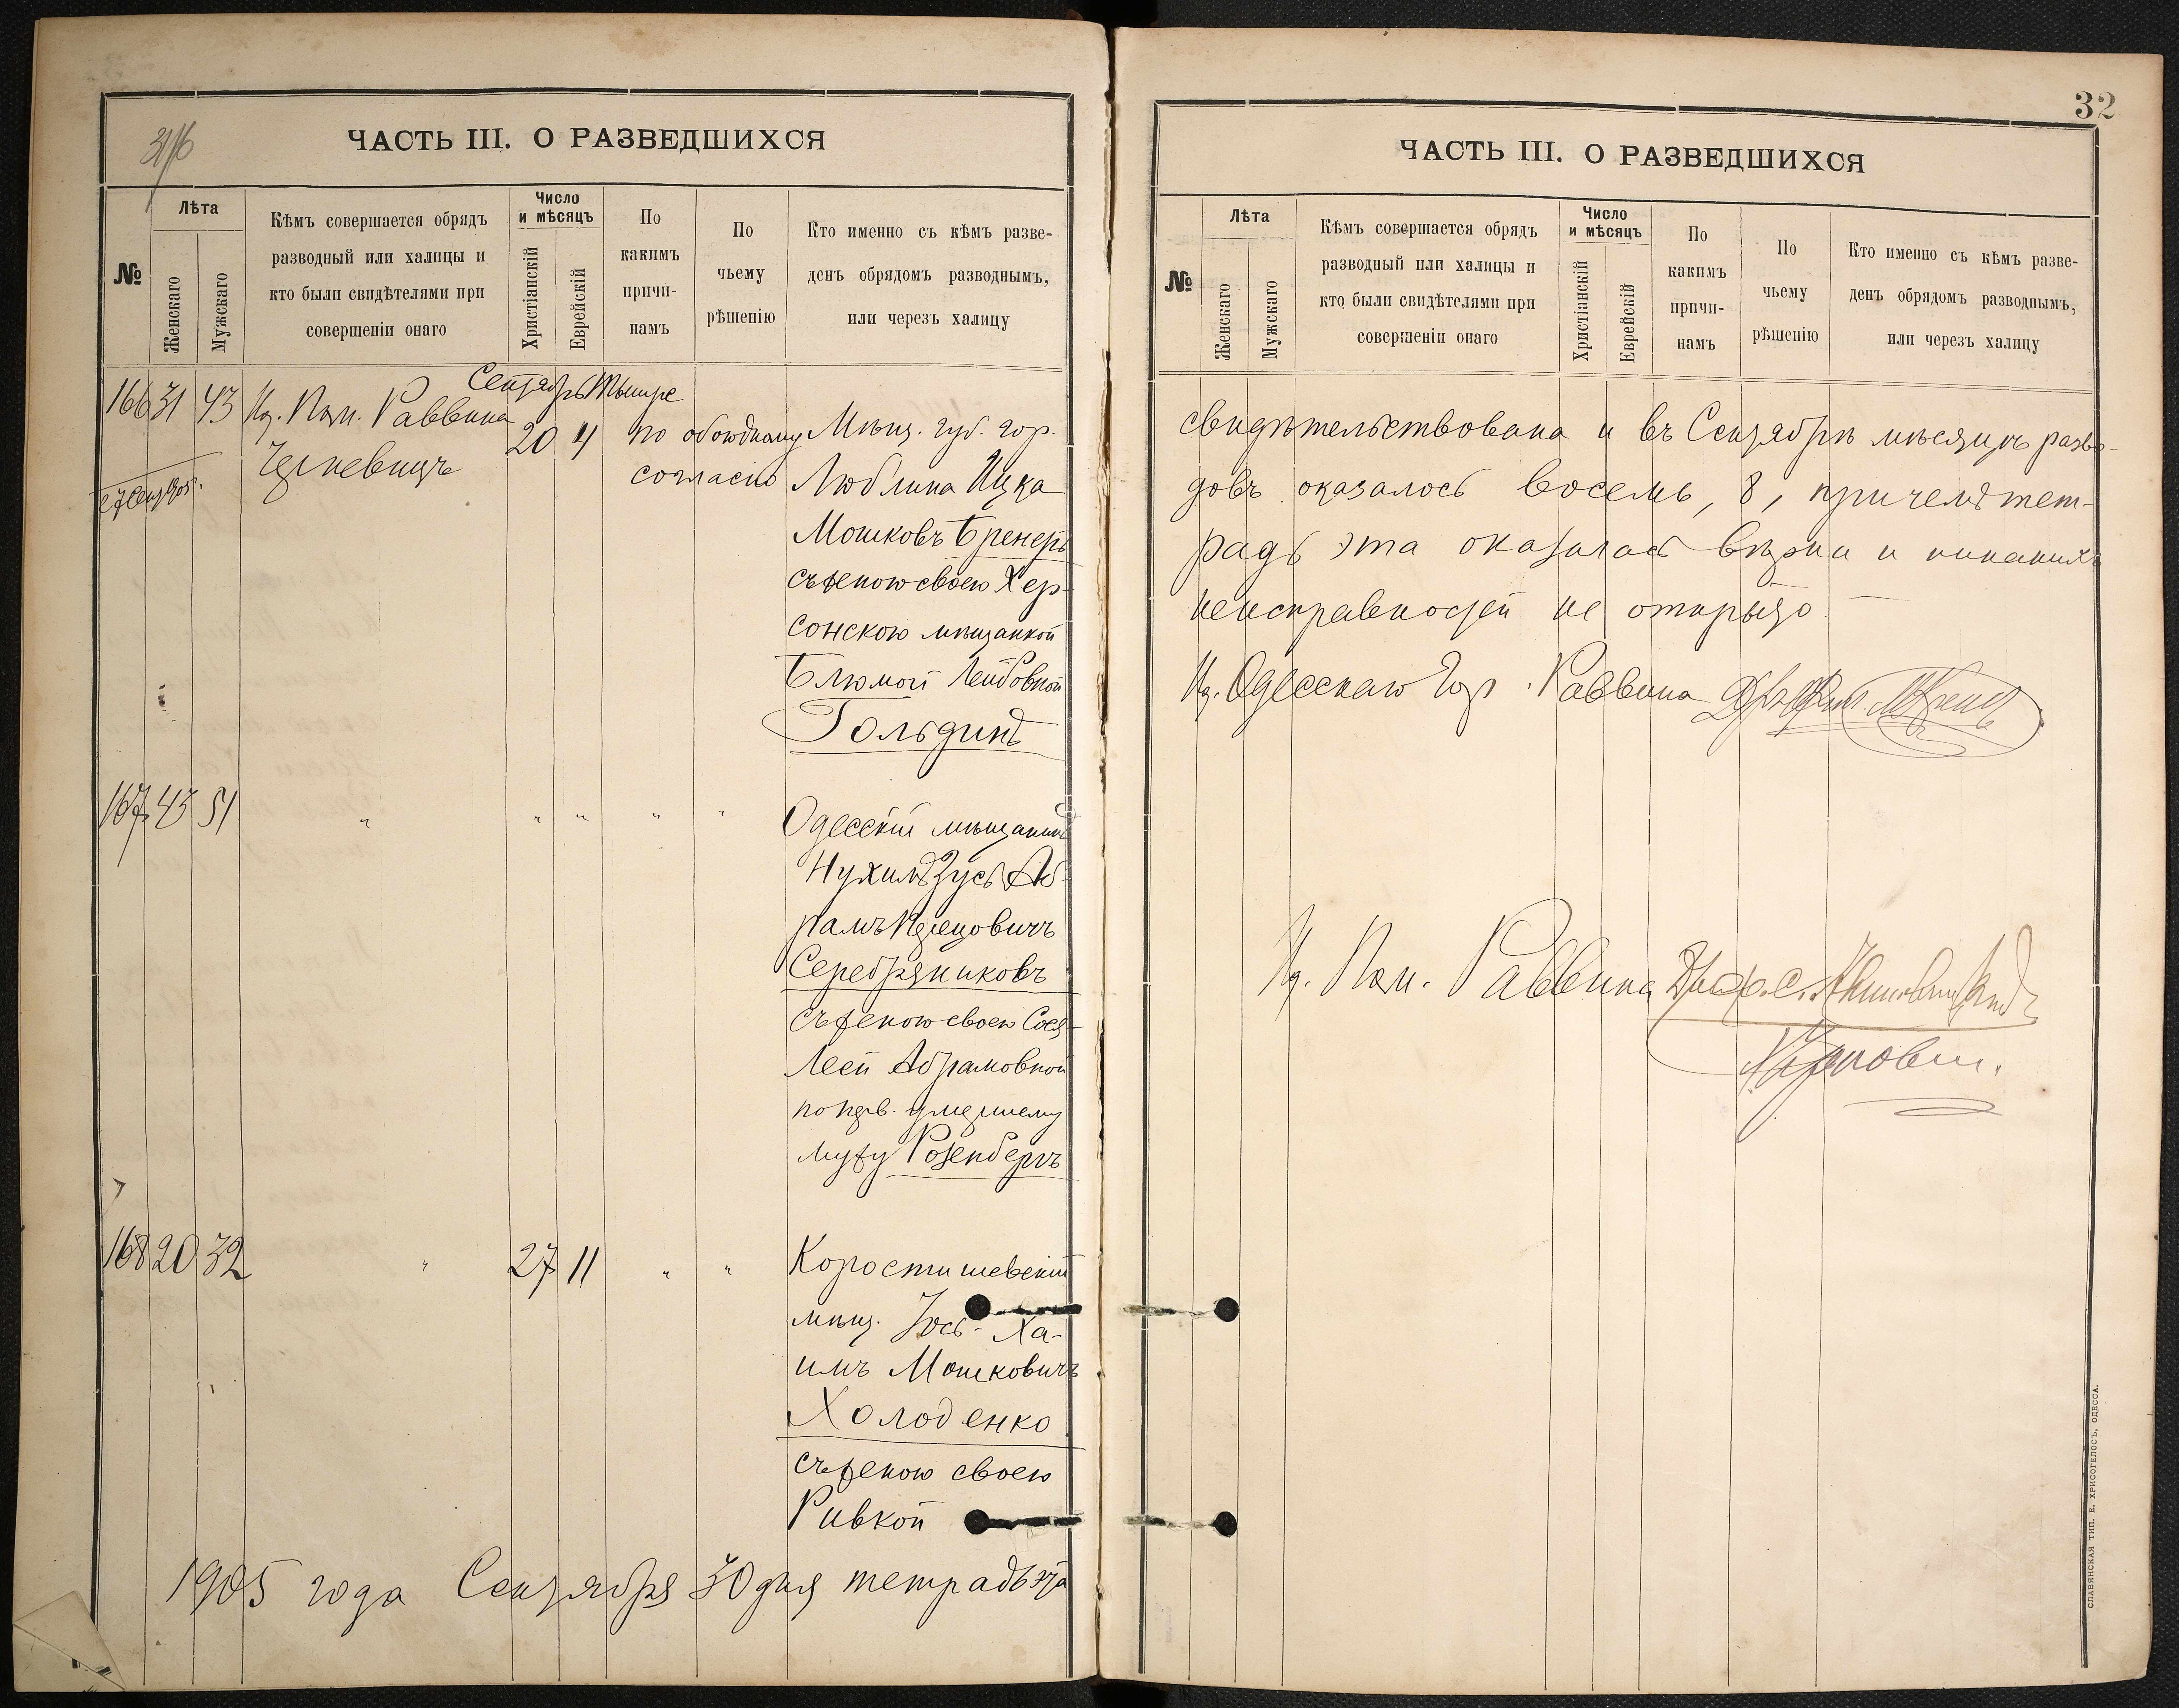 ЧАСТЬ III. О РАЗВЕДШИХСЯ
№
Лѣта
Женскаго
Мужскаго
Кѣмъ совершается обрядъ
разводный или халицы и
кто были свидѣтелями при
совершеніи онаго
Число
и мѣсяцъ
Христіанскій
Еврейскій
По
какимъ
причи-
намъ
По
чьему
рѣшенію
Кто именно съ кѣмъ разве-
денъ обрядомъ разводнымъ,
или черезъ халицу
Сентябрь Тышре
166 31 43 Ид. Пом. Раввина
20 4 по обоюдному
согласію
Мѣщ. губ. гор.
Люблина Ицка
Мошковъ Бренеръ
съ женою своею Хер-
сонскою мѣщанкой
Блюмой Лейбовной
Гольдинъ
167 43 51 " " " " "
Одесскій мѣщанинъ
Нухимъ Зусь Аб-
рамъ
Серебряниковъ
съ женою своею Сося-
Леей Абрамовной
по перв. умершему
мужу Розенбергъ
168 20 32 " 27 11 " "
Коростишевскій
мѣщ. Іось-Ха-
имъ Мошковичъ
Холоденко
съ женою своею
Ривкой
1905 года Сентября 30 дня тетрадь эта
32
ЧАСТЬ III. О РАЗВЕДШИХСЯ
№
Лѣта
Женскаго
Мужскаго
Кѣмъ совершается обрядъ
разводный или халицы и
кто были свидѣтелями при
совершеніи онаго
Число
и мѣсяцъ
Христіанскій
Еврейскій
По
какимъ
причи-
намъ
По
чьему
рѣшенію
Кто именно съ кѣмъ разве-
денъ обрядомъ разводнымъ,
или черезъ халицу
свидѣтельствована и въ Сентябрѣ мѣсяцѣ разво-
довъ оказалось восемь, 8, причемъ тет-
радь эта оказалась вѣрна и никакихъ
неисправностей не открыто.
Ид. Одесскаго Гор. Раввина
Ид. Пом. Раввина
СЛАВЯНСКАЯ ТИП. Е. ХРИСОГЕЛОСЪ, ОДЕССА.